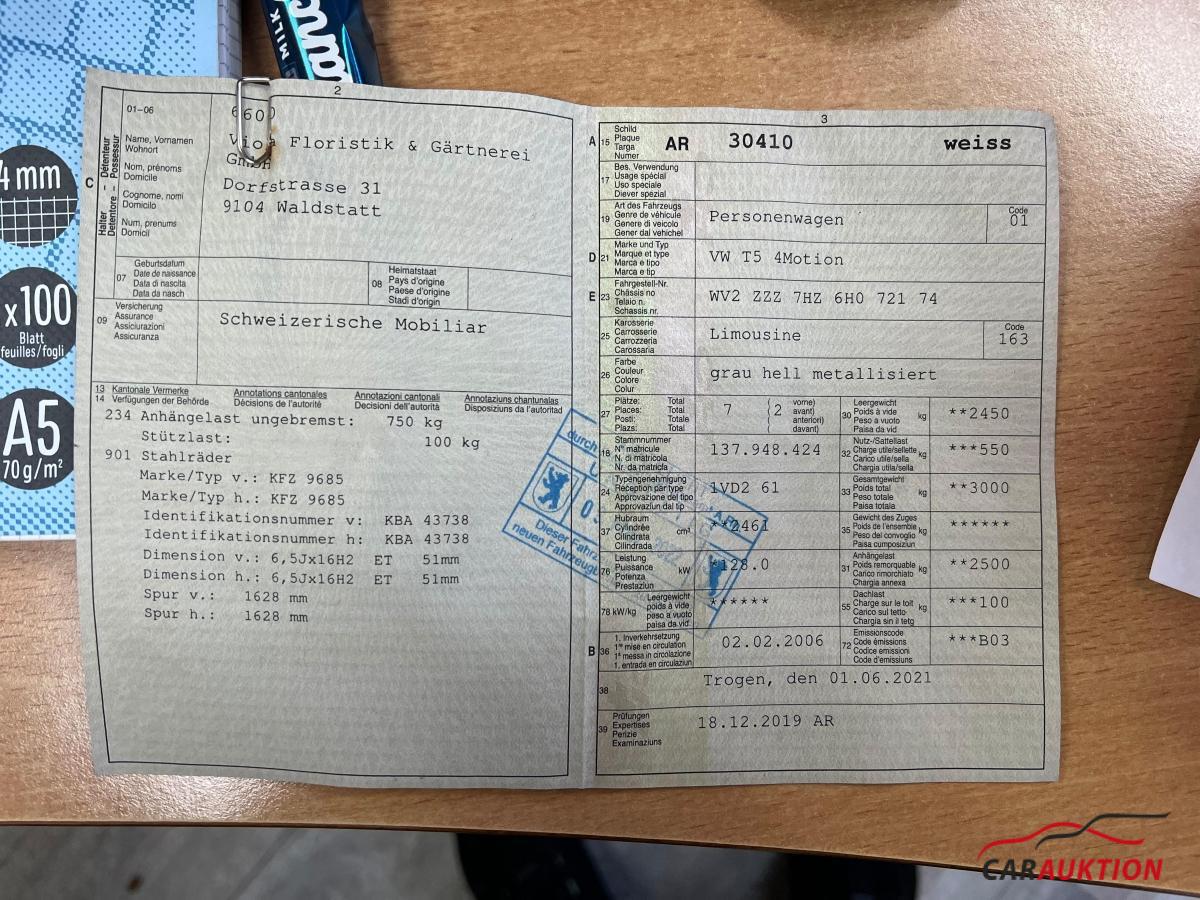 MILK
4 mm
x100
Blatt
feuilles/fogli
A5
70 g/m²
2
C
Halter – Détenteur
Detentore – Possessur
01–06
Name, Vornamen
Wohnort
Nom, prénoms
Domicile
Cognome, nomi
Domicilio
Num, prenums
Domicil
6600
Floristik & Gärtnerei
GmbH
Dorfstrasse 31
9104 Waldstatt
07
Geburtsdatum
Date de naissance
Data di nascita
Data da nasch
08
Heimatstaat
Pays d'origine
Paese d'origine
Stadi d'origin
09
Versicherung
Assurance
Assiciurazioni
Assicuranza
Schweizerische Mobiliar
13 Kantonale Vermerke Annotations cantonales Annotazioni cantonali Annotaziuns chantunalas
14 Verfügungen der Behörde Décisions de l'autorité Decisioni dell'autorità Disposiziuns da l'autoritad
234 Anhängelast ungebremst: 750 kg
Stützlast: 100 kg
901 Stahlräder
Marke/Typ v.: KFZ 9685
Marke/Typ h.: KFZ 9685
Identifikationsnummer v: KBA 43738
Identifikationsnummer h: KBA 43738
Dimension v.: 6,5Jx16H2 ET 51mm
Dimension h.: 6,5Jx16H2 ET 51mm
Spur v.: 1628 mm
Spur h.: 1628 mm
durch
Dieser Fahrz
neuen Fahrzeug
3
A 15
Schild
Plaque
Targa
Numer
AR 30410 weiss
17
Bes. Verwendung
Usage spécial
Uso speciale
Diever spezial
19
Art des Fahrzeugs
Genre de véhicule
Genere di veicolo
Gener dal vehichel
Personenwagen
Code
01
D 21
Marke und Typ
Marque et type
Marca e tipo
Marca e tip
VW T5 4Motion
E 23
Fahrgestell-Nr.
Châssis no
Telaio n.
Schassis nr.
WV2 ZZZ 7HZ 6H0 721 74
25
Karosserie
Carrosserie
Carrozzeria
Carossaria
Limousine
Code
163
26
Farbe
Couleur
Colore
Colur
grau hell metallisiert
27
Plätze: Total
Places: Total
Posti: Totale
Plazs: Total
7 (2
vorne)
avant)
anteriori)
davant)
30
Leergewicht
Poids à vide
Peso a vuoto
Paisa da vid
kg
**2450
18
Stammnummer
N° matricule
N. di matricola
Nr. da matricla
137.948.424
32
Nutz-/Sattellast
Charge utile/sellette
Carico utile/sella
Chargia utila/sella
kg
***550
24
Typengenehmigung
Réception par type
Approvazione del tipo
Approvaziun dal tip
1VD2 61
33
Gesamtgewicht
Poids total
Peso totale
Paisa totala
kg
**3000
37
Hubraum
Cylindrée
Cilindrata
Cilindrada
cm³
**2461
35
Gewicht des Zuges
Poids de l'ensemble
Peso del convoglio
Paisa cumposiziun
kg
******
76
Leistung
Puissance
Potenza
Prestaziun
kW
*128.0
31
Anhängelast
Poids remorquable
Carico rimorchiato
Chargia annexa
kg
**2500
78 kW/kg
Leergewicht
poids à vide
peso a vuoto
paisa da vid
******
55
Dachlast
Charge sur le toit
Carico sul tetto
Chargia sin il tetg
kg
***100
B 36
1. Inverkehrsetzung
1re mise en circulation
1a messa in circolazione
1. entrada en circulaziun
02.02.2006
72
Emissionscode
Code émissions
Codice emissioni
Code d'emissiuns
***B03
38
Trogen, den 01.06.2021
39
Prüfungen
Expertises
Perizie
Examinaziuns
18.12.2019 AR
CARAUKTION